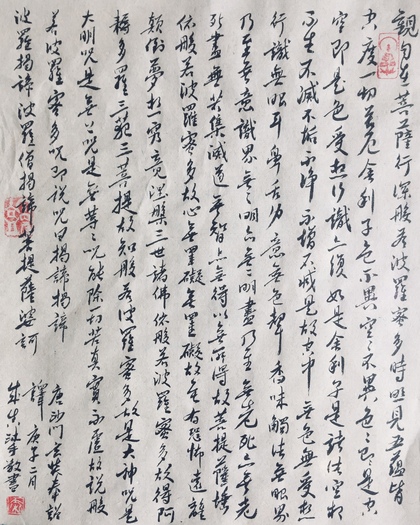 觀自在菩薩行深般若波羅蜜多時照見五蘊皆
空度一切苦厄舍利子色不異空々不異色々即是空
空即是色受想行識亦復如是舍利子是諸法空相
不生不滅不垢不淨不增不減是故空中無色無受想
行識無眼耳鼻舌身意無色聲香味觸法無眼界
乃至無意識界無無明亦無無明盡乃至無老死亦無老
死盡無苦集滅道無智亦無得以無所得故菩提薩埵
依般若波羅蜜多故心無罣礙無罣礙故無有恐怖遠離
顛倒夢想究竟涅槃三世諸佛依般若波羅蜜多故得阿
耨多羅三藐三菩提故知般若波羅蜜多故是大神咒是
大明咒是無上咒是無等々咒能除一切苦真實不虛故說般
若波羅蜜多咒即說咒曰揭諦揭諦
波羅揭諦波羅僧揭諦菩提薩婆訶
唐沙門玄奘奉詔
譯 庚子二月
敬書